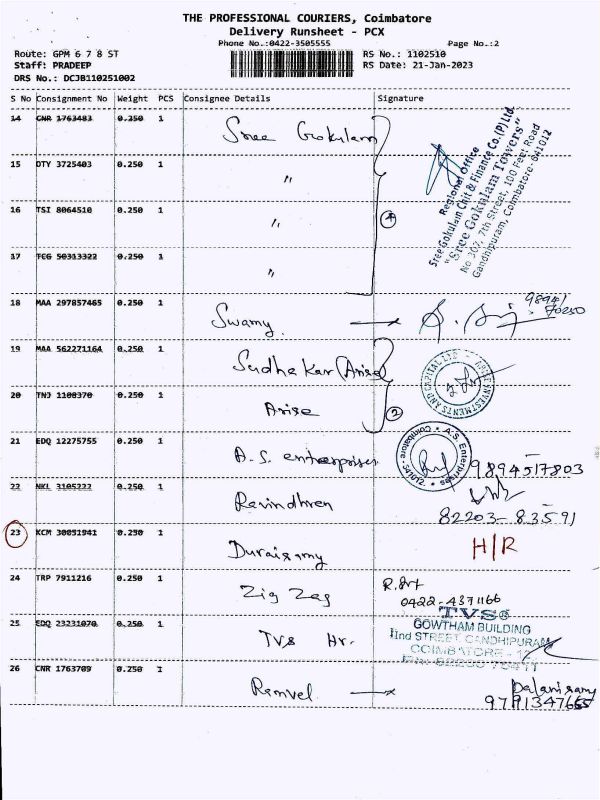 THE PROFESSIONAL COURIERS, Coimbatore
Delivery Runsheet - PCX
Phone No.:0422-3505555 Page No.:2
Route: GPM 6 7 8 ST RS No.: 1102510
Staff: PRADEEP RS Date: 21-Jan-2023
DRS No.: DCJB110251002
S No Consignment No Weight PCS Consignee Details Signature
14 CNR 1763483 0.250 1 Sree Gokulam
15 DTY 3725403 0.250 1 "
16 TSI 8064510 0.250 1 "
17 TCG 50313322 0.250 1 "
4
Regional Office
Sree Gokulam Chit & Finance Co.(P)Ltd.
"Sree Gokulam Towers"
No 302, 7th Street, 100 Feet Road
Gandhipuram, Coimbatore-641012
18 MAA 297857465 0.250 1 Swamy
9894/
70250
19 MAA 562271164 0.250 1 Sudhakar (Arise)
ARISE INVESTMENTS AND CAPITAL LTD
20 TNJ 1108370 0.250 1 Arise
2
21 EDQ 12275755 0.250 1 A.S. enterprises
A.S. Enterprises
Coimbatore - 641012.
9894517803
22 NKL 3105222 0.250 1 Ravindhren
82203-83591
23 KCM 30051941 0.250 1 Duraisamy H/R
24 TRP 7911216 0.250 1 Zig Zag
0422-4371166
25 EDQ 23231070 0.250 1 TVS Hr.
TVS
GOWTHAM BUILDING
IInd STREET, GANDHIPURAM
COIMBATORE - 12
26 CNR 1763709 0.250 1 Ramvel Palanisamy
9791347665